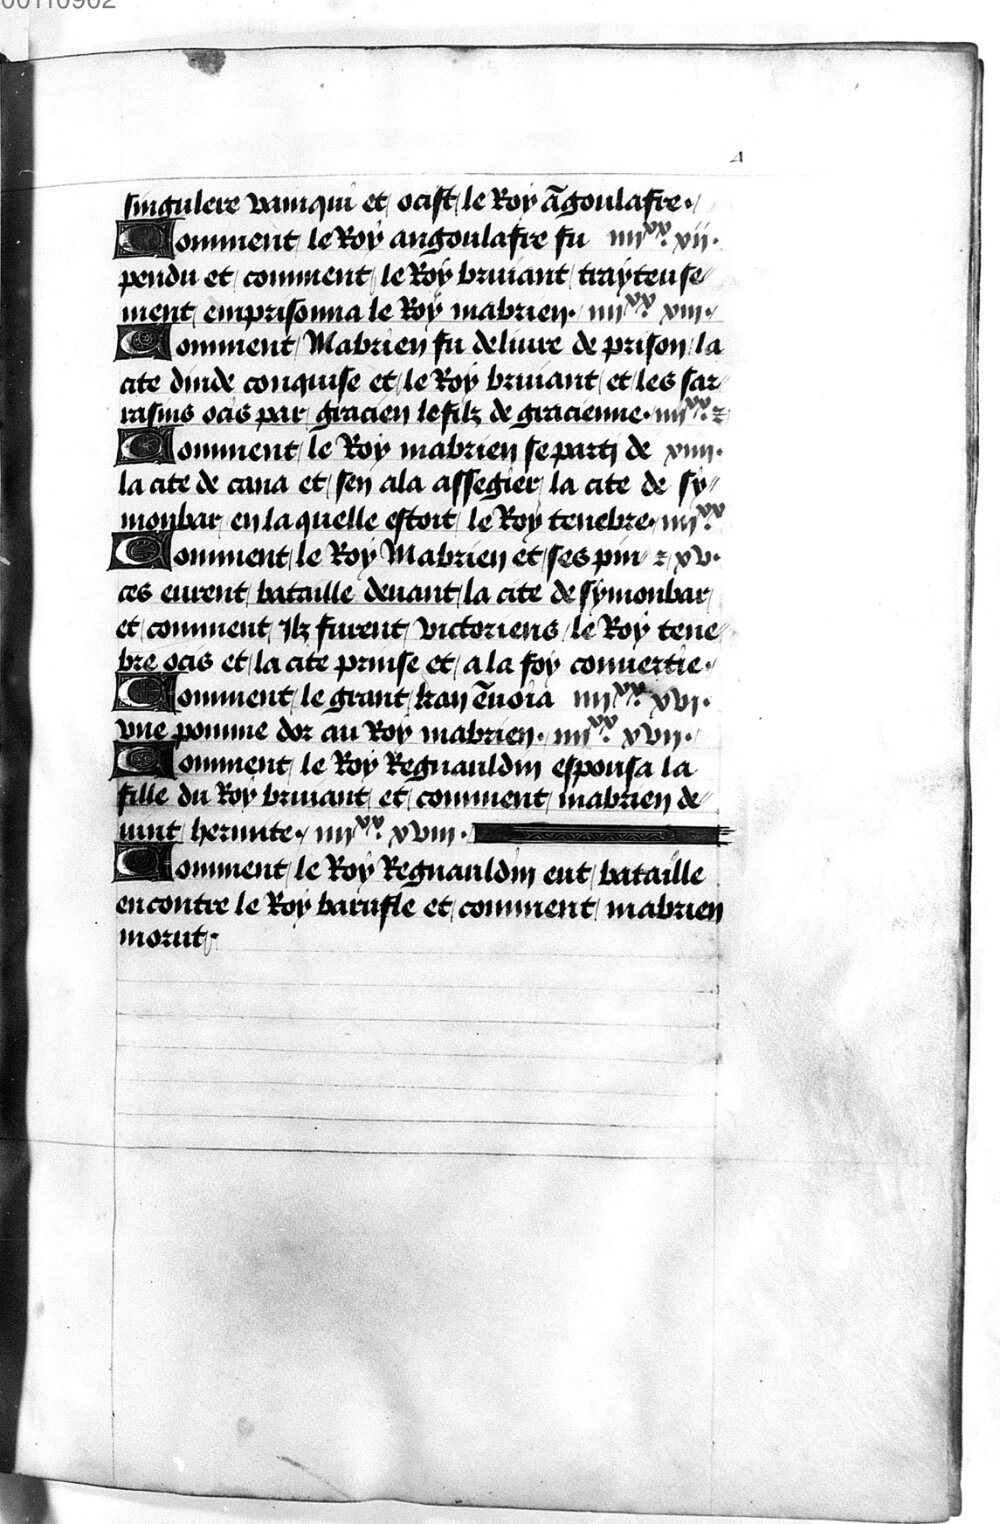 00110902
4
singulere vainqui et ocist le Roy āgoulafre.
Comment le Roy angoulafre fu iiiiˣˣ. xii.
pendu et comment le Roy bruiant trayteuse
ment emprisonna le Roy mabrien. iiiiˣˣ xiii.
Comment Mabrien fu deliure de prison la
cite dinde conquise et le Roy bruiant et les sar
rasins ocis par gracien le filz de gracienne. iiiiˣˣ. ⁊
Comment le Roy mabrien se parti de xiiii.
la cite de cana et sen ala assegier la cite de sy
monbar en la quelle estoit le Roy tenebre. iiiiˣˣ
Comment le Roy Mabrien et ses prin ⁊ xv.
ces eurent bataille deuant la cite de symonbar
et comment Ilz furent victoriens le Roy tene
bre ocis et la cite prinse et a la foy conuertie.
Comment le grant kan ēuoia iiiiˣˣ. xvi.
vne pomme dor au Roy mabrien. iiiiˣˣ. xvii.
Comment le Roy Regnauldin espousa la
fille du Roy bruiant et comment mabrien de
uint hermite. iiiiˣˣ. xviii.
Comment le Roy Regnauldin eut bataille
encontre le Roy barufle et comment mabrien
morut.